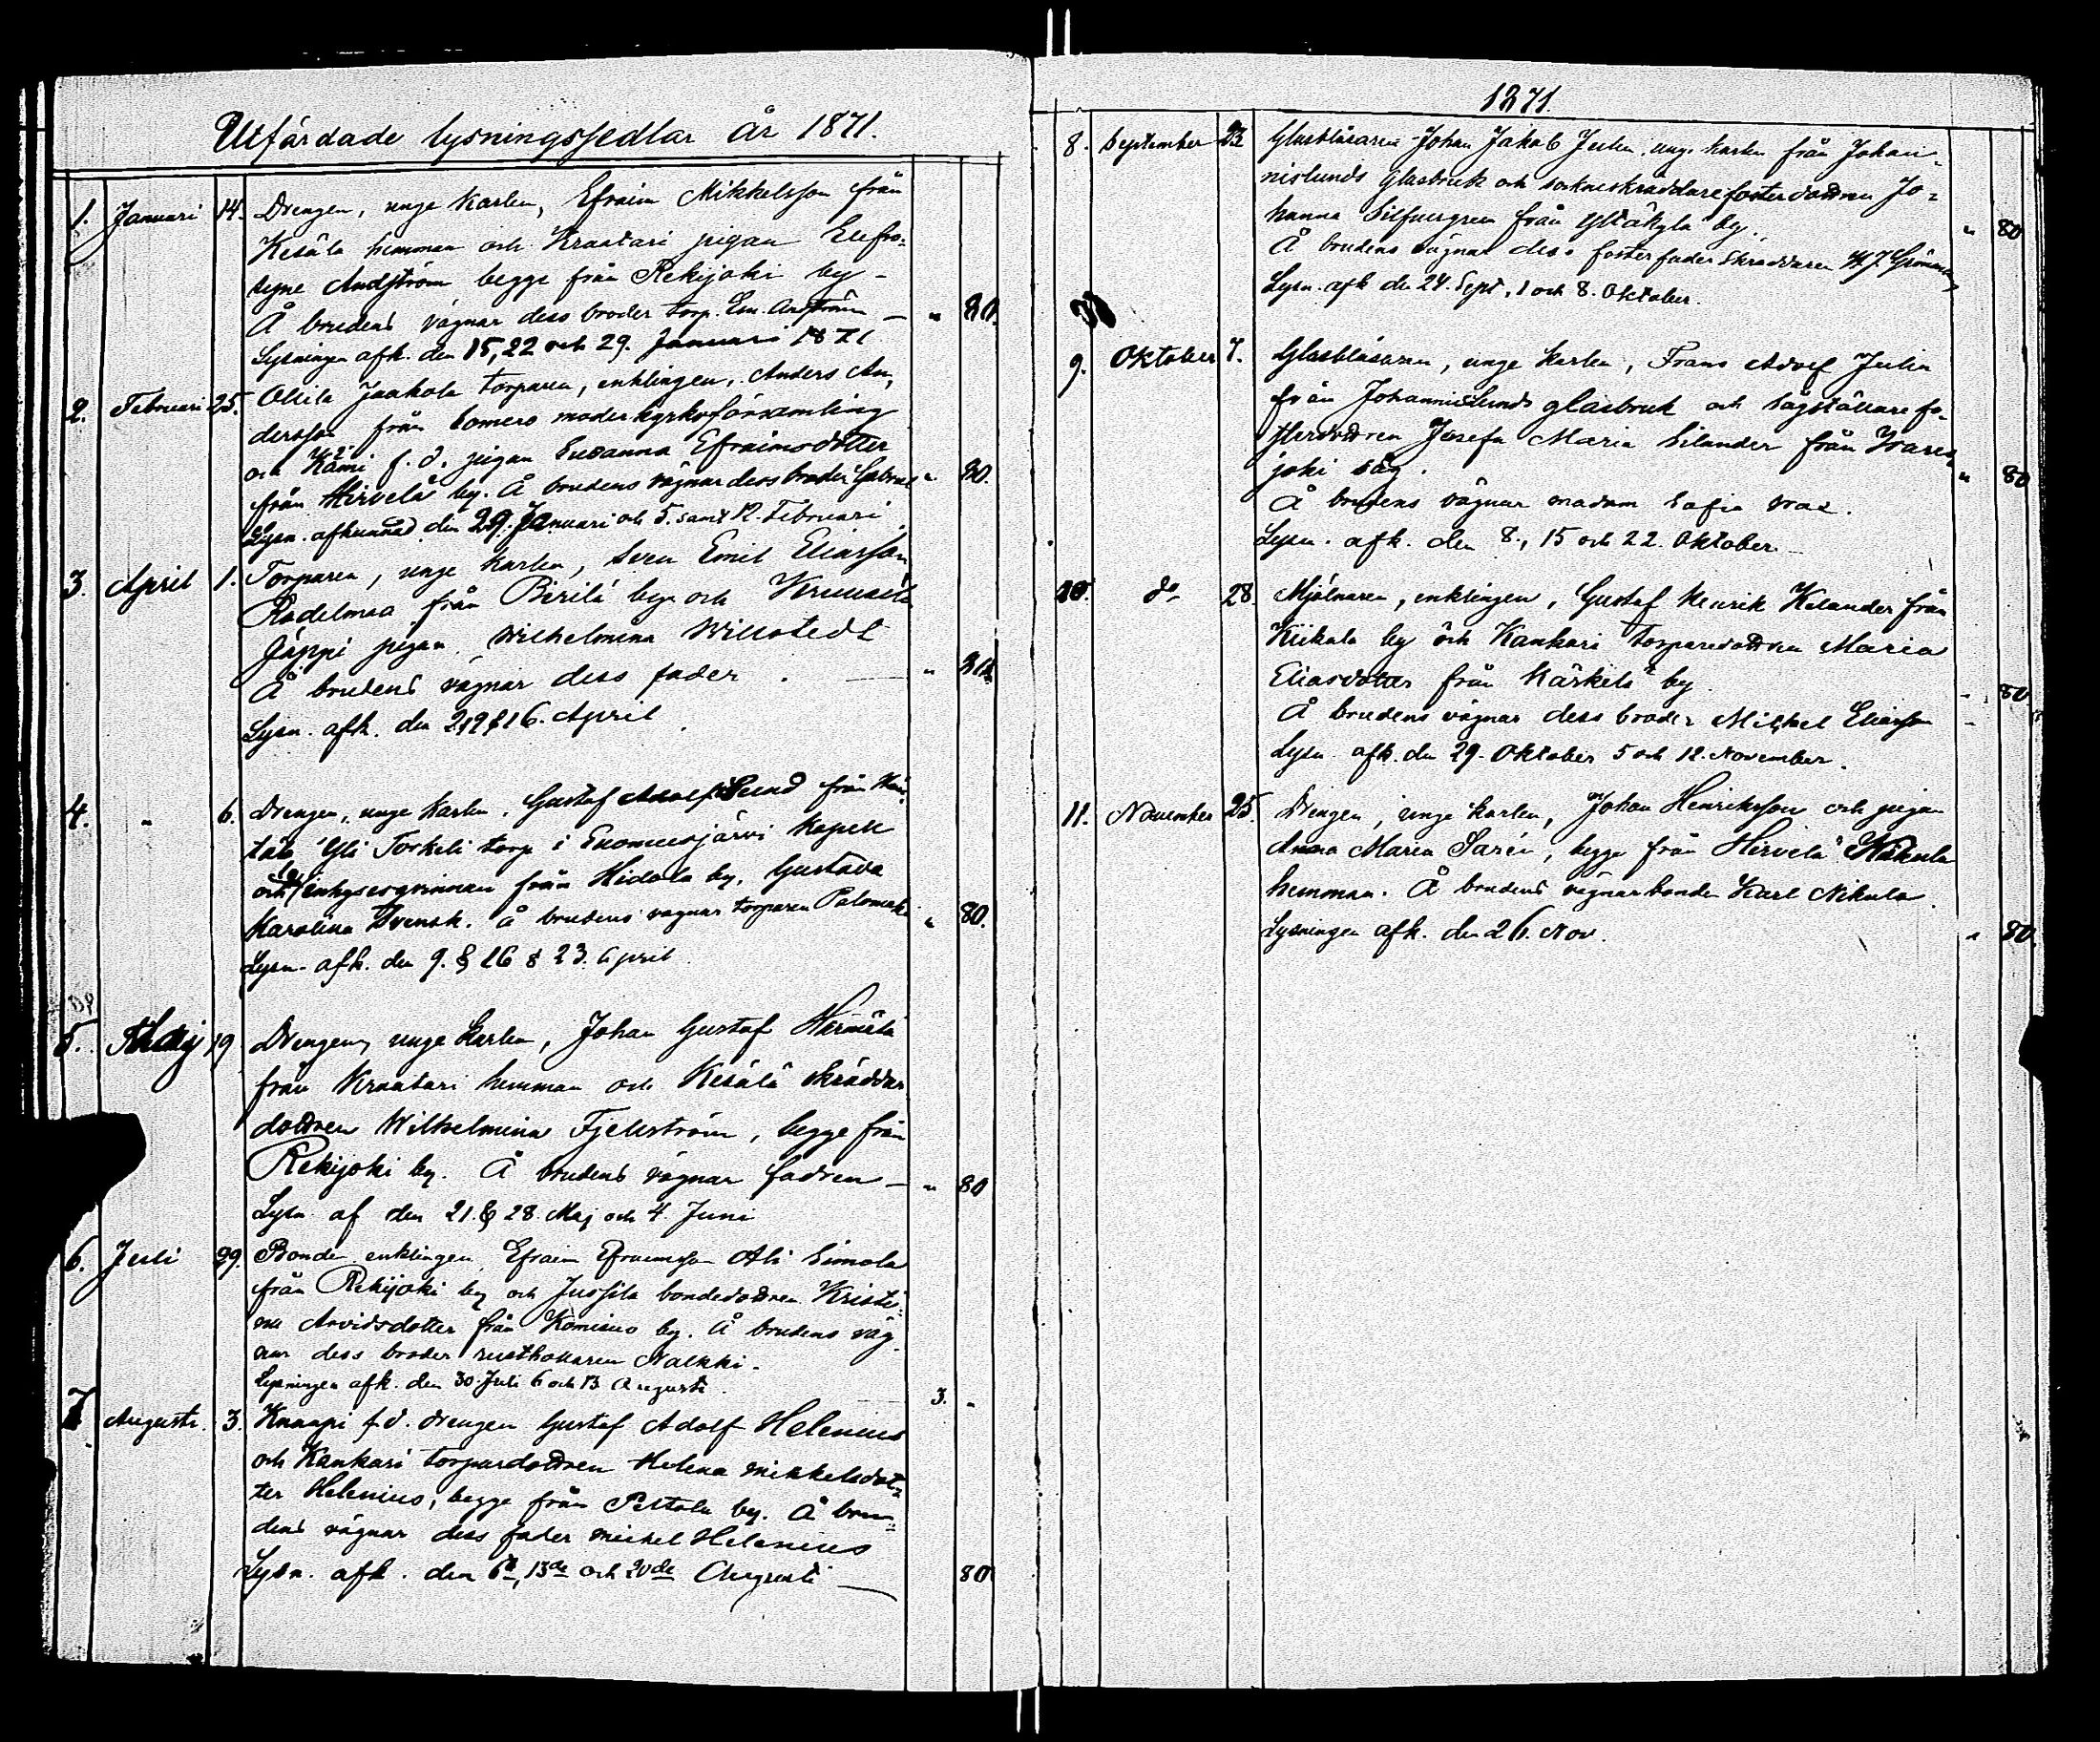 Utfärdade lysningssedlar år 1871.
1. Januari 14. Drengen, unge karlen, Efraim Mikkelsson från
Kesälä hemman och Kraatari pigan Eufro-
syne Andström begge från Rekijoki by -
Å brudens vägnar dess broder torp. Em. Andström — " 80.
Lysningen afk. den 15, 22 och 29. Januari 1871
2. Februari 25. Ollila Jaakola torparen, enklingen, Anders An-
dersson från Somero moderkyrkoförsamling
och Kämi f. d. pigan Susanna Efraimsdotter
från Hirvelä by. Å brudens vägnar dess broder Gabriel " 80.
Lysn. afkunnad den 29. Januari och 5. samt 12. Februari
3. April 1. Torparen, unge karlen, Sven Emil Eliasson
Radelmaa från Pirilä by och
Jäppi pigan Wilhelmina Willstedt
Å brudens vägnar dess fader . " 80.
Lysn. afk. den 2, 9 & 16. April
4. " 6. Drengen, unge karlen, Gustaf Adolf Lund från
Yli Torkeli torp i Suomusjärvi kapell
och inhysesqvinnan från Hidola by, Gustava
Karolina Svensk. Å brudens vägnar torparen Palomäki " 80.
Lysn. afk. den 9. & 16 & 23. April
5. Maj 19 Drengen, unge karlen, Johan Gustaf
från Kraatari hemman och Kesälä skräddar
dottren Wilhelmina Fjellström, begge från
Rekijoki by. Å brudens vägnar fadren — " 80
Lysn. af den 21. & 28. Maj och 4. Juni
6. Juli 29. Bonden enklingen, Efraim Efraimsson Ali Simola
från Rekijoki by och Jussila bondedottren Kristi-
na Arvidsdotter från Komisuo by. Å brudens väg-
nar dess broder rusthollaren Nalkki.
Lysningen afk. den 30. Juli 6 och 13 Augusti. 3. "
7 Augusti. 3. Knaapi f. d. drengen Gustaf Adolf Helenius
och Kankari torpardottren Helena Mikkelsdot-
ter Helenius, begge från Pettola by. Å bru-
dens vägnar dess fader Mickel Helenius
Lysn. afk. den 6te, 13de och 20de Augusti — 80
1871.
8. September 23 Glasblåsaren Johan Jakob Julin, unge karlen från Johan-
nislunds Glasbruk och sockneskräddarefosterdottren Jo-
hanna Silfvergren från Yltäkylä by. " 80
Å brudens vägnar dess fosterfader Skräddaren
Lysn. afk. den 24. Sept, 1 och 8. Oktober.
9. Oktober 7. Glasblåsaren, unge karlen, Frans Adolf Julin
från Johannislunds glasbruk och sågställare fo-
sterdottren Josefa Maria Silander från Ivares-
joki såg. " 80
Å brudens vägnar madam Sofia
Lysn. afk. den 8., 15 och 22. Oktober. —
10. do 28. Mjölnaren, enklingen, Gustaf Henrik Kelander från
Kiikala by och Kankari torparedottren Maria
Eliasdotter från Kärkelä by " 80
Å brudens vägnar dess broder Michel Eliasson
Lysn. afk. den 29. Oktober 5 och 12. November.
11. November 25. Drengen, unge karlen, Johan Henriksson och pigan
Anna Maria Sarén, begge från Hirvelä
hemman. Å brudens vägnar bonden Karl Nikula.
Lysningen afk. den 26. Nov. " 80.